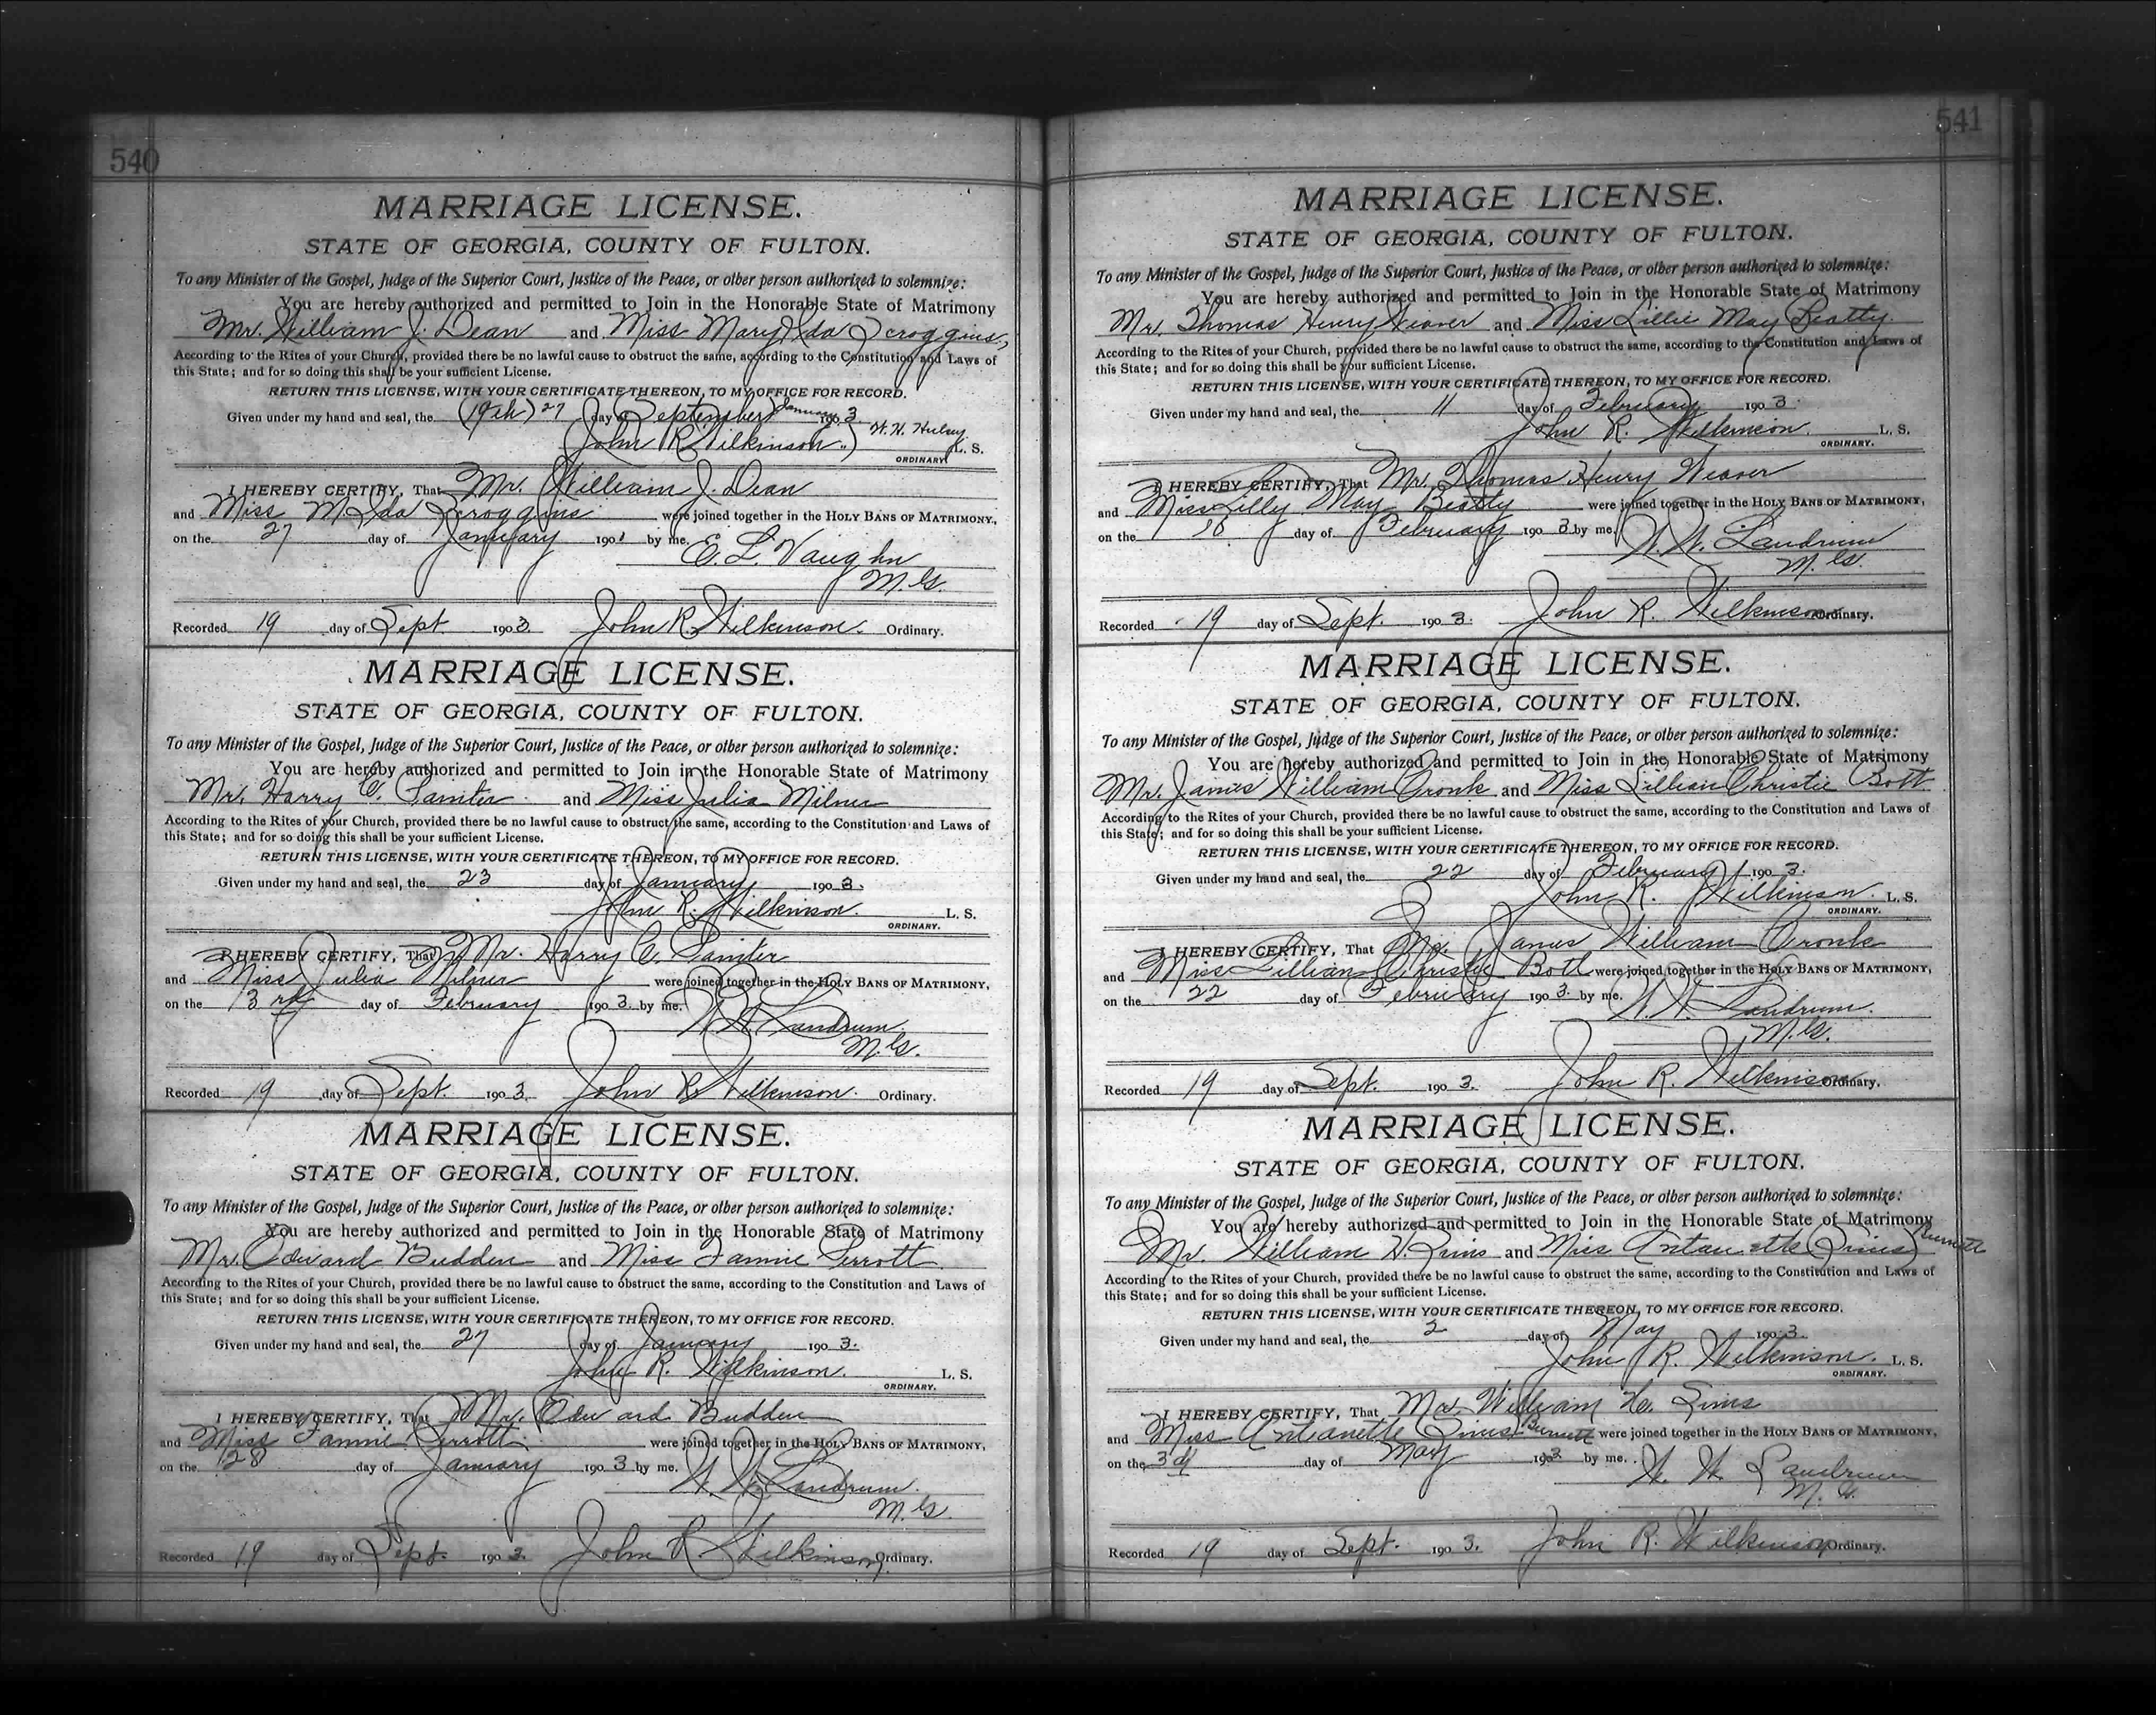 540
MARRIAGE LICENSE.
STATE OF GEORGIA, COUNTY OF FULTON.
To any Minister of the Gospel, Judge of the Superior Court, Justice of the Peace, or other person authorized to solemnize:
You are hereby authorized and permitted to Join in the Honorable State of Matrimony
Mr. William J. Dean and Miss Mary Ida Scroggins,
According to the Rites of your Church, provided there be no lawful cause to obstruct the same, according to the Constitution and Laws of
this State; and for so doing this shall be your sufficient License.
RETURN THIS LICENSE, WITH YOUR CERTIFICATE THEREON, TO MY OFFICE FOR RECORD.
Given under my hand and seal, the (19th) 27 day of September) January 1903
(John R. Wilkinson.) W. H. Hulsey L. S.
ORDINARY
I HEREBY CERTIFY, That Mr. William J. Dean
and Miss M Ida Scroggins were joined together in the HOLY BANS OF MATRIMONY,
on the 27 day of January 1901 by me. E. L. Vaughn
M. G.
Recorded 19 day of Sept. 1903. John R. Wilkinson. Ordinary.
MARRIAGE LICENSE.
STATE OF GEORGIA, COUNTY OF FULTON.
To any Minister of the Gospel, Judge of the Superior Court, Justice of the Peace, or other person authorized to solemnize:
You are hereby authorized and permitted to Join in the Honorable State of Matrimony
Mr. Harry C. and Miss Julia Milner
According to the Rites of your Church, provided there be no lawful cause to obstruct the same, according to the Constitution and Laws of
this State; and for so doing this shall be your sufficient License.
RETURN THIS LICENSE, WITH YOUR CERTIFICATE THEREON, TO MY OFFICE FOR RECORD.
Given under my hand and seal, the 23 day of January 1903.
John R. Wilkinson. L. S.
ORDINARY.
I HEREBY CERTIFY, That Mr. Harry C.
and Miss Julia Milner were joined together in the HOLY BANS OF MATRIMONY,
on the 3rd day of February 1903. by me. W. W. Landrum.
M. G.
Recorded 19 day of Sept. 1903. John R. Wilkinson. Ordinary.
MARRIAGE LICENSE.
STATE OF GEORGIA, COUNTY OF FULTON.
To any Minister of the Gospel, Judge of the Superior Court, Justice of the Peace, or other person authorized to solemnize:
You are hereby authorized and permitted to Join in the Honorable State of Matrimony
Mr. Edward Budden and Miss Fannie Perrott
According to the Rites of your Church, provided there be no lawful cause to obstruct the same, according to the Constitution and Laws of
this State; and for so doing this shall be your sufficient License.
RETURN THIS LICENSE, WITH YOUR CERTIFICATE THEREON, TO MY OFFICE FOR RECORD.
Given under my hand and seal, the 27 day of January 1903.
John R. Wilkinson. L. S.
ORDINARY.
I HEREBY CERTIFY, That Mr. Edward Budden
and Miss Fannie Perrott were joined together in the HOLY BANS OF MATRIMONY,
on the 28 day of January 1903 by me. W. W. Landrum.
M. G.
Recorded 19 day of Sept. 1903. John R. Wilkinson. Ordinary.
541
MARRIAGE LICENSE.
STATE OF GEORGIA, COUNTY OF FULTON.
To any Minister of the Gospel, Judge of the Superior Court, Justice of the Peace, or other person authorized to solemnize:
You are hereby authorized and permitted to Join in the Honorable State of Matrimony
Mr. Thomas Henry Weaver and Miss Lillie May Beatty
According to the Rites of your Church, provided there be no lawful cause to obstruct the same, according to the Constitution and Laws of
this State; and for so doing this shall be your sufficient License.
RETURN THIS LICENSE, WITH YOUR CERTIFICATE THEREON, TO MY OFFICE FOR RECORD.
Given under my hand and seal, the 11 day of February 1903.
John R. Wilkinson. L. S.
ORDINARY.
I HEREBY CERTIFY, That Mr. Thomas Henry Weaver
and Miss Lilly May Beatty were joined together in the HOLY BANS OF MATRIMONY,
on the day of February 1903 by me. W. W. Landrum
M. G.
Recorded 19 day of Sept. 1903. John R. Wilkinson Ordinary.
MARRIAGE LICENSE.
STATE OF GEORGIA, COUNTY OF FULTON.
To any Minister of the Gospel, Judge of the Superior Court, Justice of the Peace, or other person authorized to solemnize:
You are hereby authorized and permitted to Join in the Honorable State of Matrimony
Mr. James William Cronk and Miss Lillian Christie Bott
According to the Rites of your Church, provided there be no lawful cause to obstruct the same, according to the Constitution and Laws of
this State; and for so doing this shall be your sufficient License.
RETURN THIS LICENSE, WITH YOUR CERTIFICATE THEREON, TO MY OFFICE FOR RECORD.
Given under my hand and seal, the 22 day of February 1903.
John R. Wilkinson. L. S.
ORDINARY.
I HEREBY CERTIFY, That Mr. James William Cronk
and Miss Lillian Christie Bott were joined together in the HOLY BANS OF MATRIMONY,
on the 22 day of February 1903. by me. W. W. Landrum.
M. G.
Recorded 19 day of Sept. 1903. John R. Wilkinson Ordinary.
MARRIAGE LICENSE.
STATE OF GEORGIA, COUNTY OF FULTON.
To any Minister of the Gospel, Judge of the Superior Court, Justice of the Peace, or other person authorized to solemnize:
You are hereby authorized and permitted to Join in the Honorable State of Matrimony
Mr. William H. Sims and Miss Antanette (Sims) Burnett
According to the Rites of your Church, provided there be no lawful cause to obstruct the same, according to the Constitution and Laws of
this State; and for so doing this shall be your sufficient License.
RETURN THIS LICENSE, WITH YOUR CERTIFICATE THEREON, TO MY OFFICE FOR RECORD.
Given under my hand and seal, the 2 day of May 1903.
John R. Wilkinson. L. S.
ORDINARY.
I HEREBY CERTIFY, That Mr. William H. Sims
and Miss Antanette Sims Burnett were joined together in the HOLY BANS OF MATRIMONY,
on the 3d day of May 1903 by me. W. W. Landrum
M. G.
Recorded 19 day of Sept. 1903. John R. Wilkinson Ordinary.